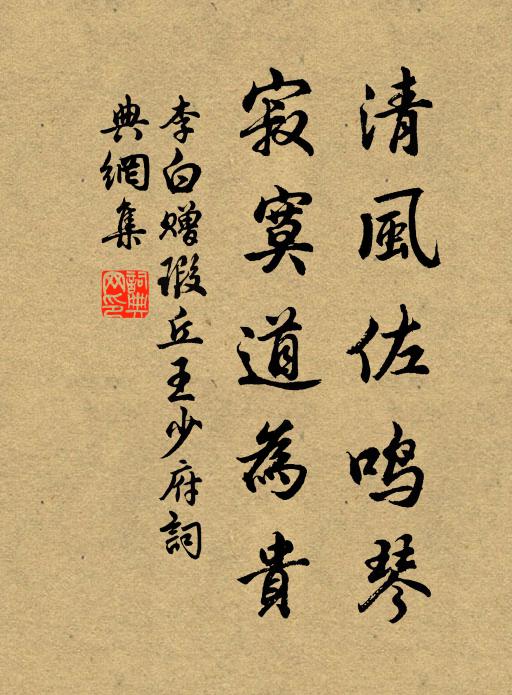 清風佐鳴琴
寂寞道為貴
李白贈瑕丘王少府詞
典網集
詞典
网印